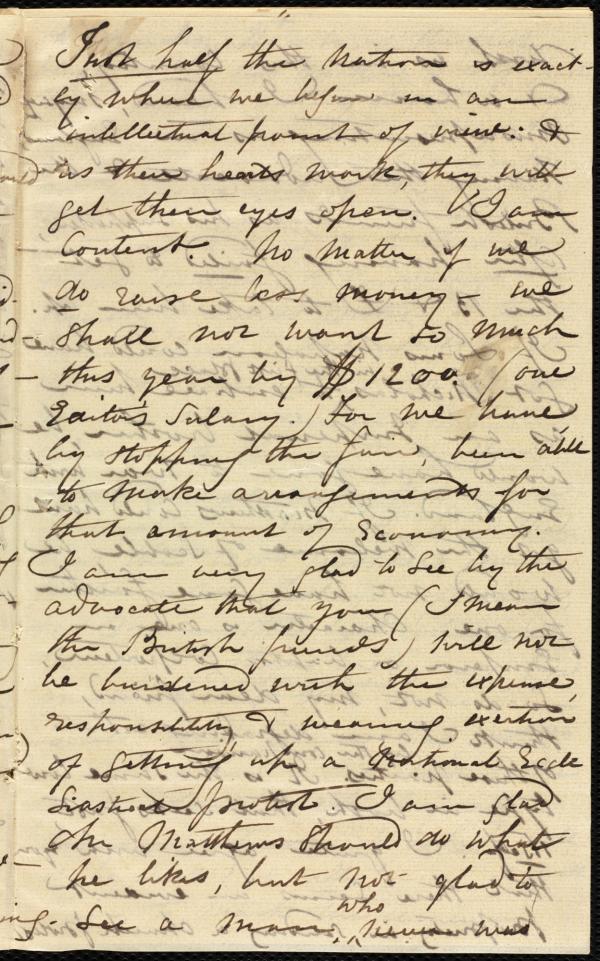 Just half the Nation is exact-
ly where we begin in an
intellectual point of view: &
as their hearts work, they will
get their eyes open. I am
Content. No matter if we
do raise less money - we
shall not want so much
this year by $1200. (one
Editor's Salary.) For we have,
by stopping the fair, been able
to make arrangements for
that amount of Economy.
I am very glad to see by the
advocate that you (I mean
the British friends) will not
be burdened with the expense,
responsibility, & wearing exertion
of getting up a National Eccle
siastical protest. I am glad
Mr Matthews should do what
he likes, but not glad to
see a man, who never was